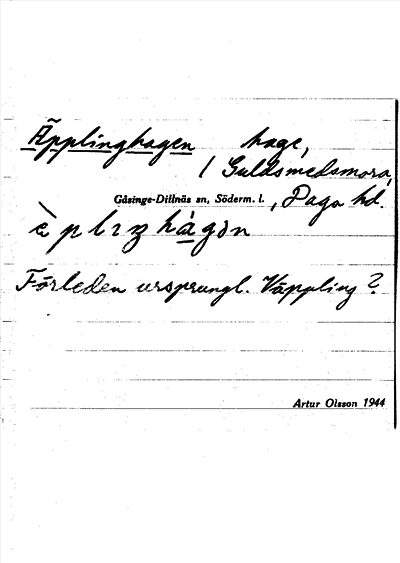 Äpplinghagen hage,
/ Guldsmedsmora,
Gåsinge-Dillnäs sn, Söderm. l., Daga hd.
Förleden ursprungl. Väppling?
Artur Olsson 1944